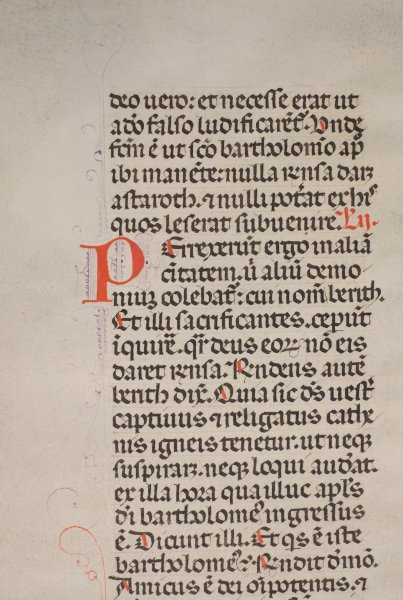 deo uero: et necesse erat ut
a do falso ludificaret. Vnde
fcm ē ut sco bartholomeo ap
ibi manēte: nulla rnsa darꝫ
astaroth. ⁊ nulli poťat ex his
quos leserat subuenire. Lıȷ.
Perrexerūt ergo in aliā
ciutatem. ū aliū demo
niuꝫ colebāt: cui nom̄ berith.
Et illi sacrificantes. ceperūt
iquirē. qr̄ deus eorꝝ nō eis
daret rnsa. Rndens autē
berith dix̄. Quia sic ds̄ uesť
captiuus ⁊ religatus cathe
nis igneis tenetur. ut neqꝫ
suspirarꝫ. neqꝫ loqui audeat.
ex illa hora qua illuc apl̄s
dı̄ bartholomeꝰ ingressus
ē. Dicunt illi. Et qs̄ ē iste
bartholomeꝰ? Rndit dīmō.
Amicus ē dei oı̄potentis. ⁊